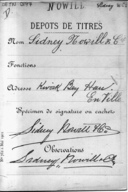 NOWILL
DEPOTS DE TITRES
Nom Sidney Nowill & C°
Fonctions
Adresse Kirick Bey Han
En Ville
Spécimen de signature ou cachets
Sidney Nowill & Co
Observations
Sidney Nowill & Co